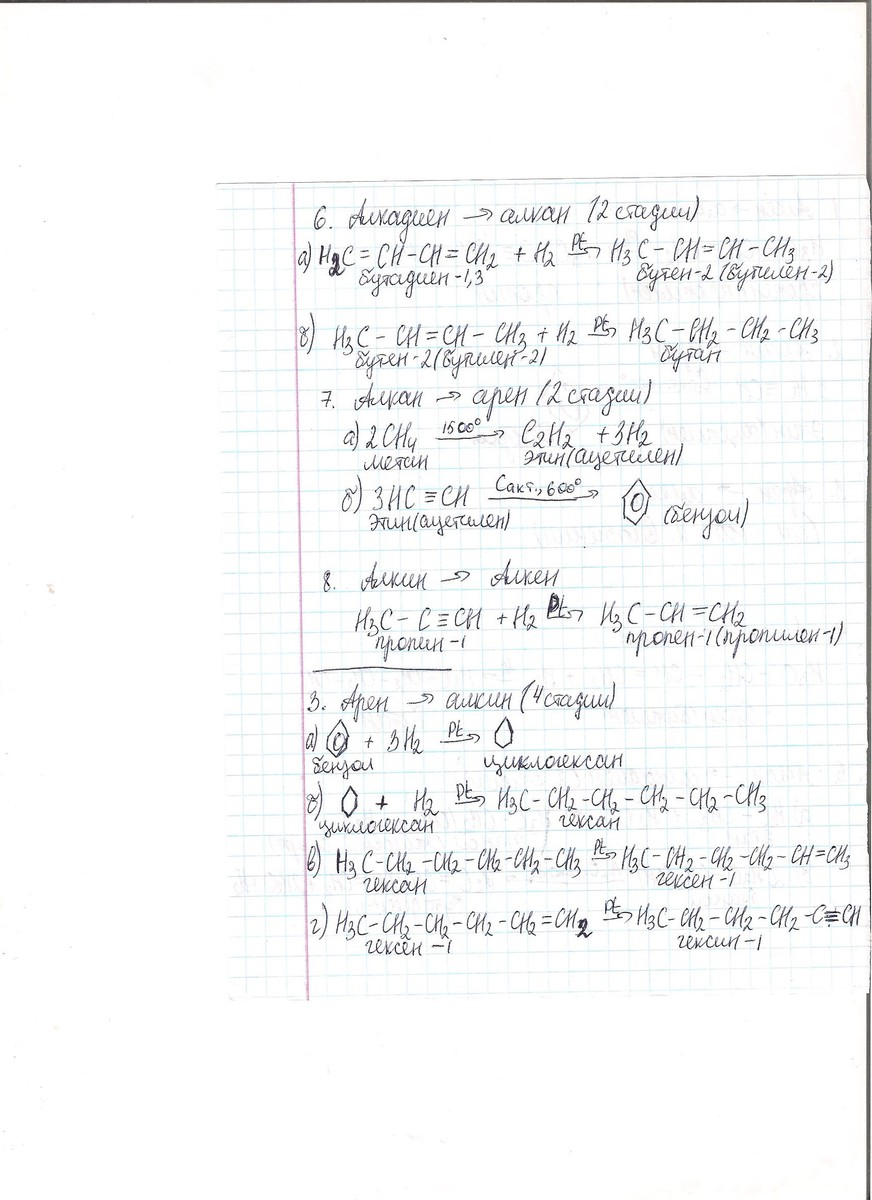 6. Алкадиен → алкан (2 стадии)
а) H2C = CH-CH=CH2 + H2 Pt→ H3C - CH=CH-CH3
бутадиен-1,3 бутен-2 (бутилен-2)
б) H3C - CH =CH- CH3 + H2 Pt→ H3C - CH2 - CH2 - CH3
бутен-2(бутилен-2) бутан
7. Алкан → арен (2 стадии)
а) 2CH4 1500°→ C2H2 + 3H2
метан этин(ацетилен)
б) 3HC ≡ CH Cакт., 600°→ (бензол)
этин(ацетилен)
8. Алкин → Алкен
H3C - C ≡ CH + H2 Pt→ H3C - CH = CH2
пропин-1 пропен-1(пропилен-1)
3. Арен → алкин (4 стадии)
а) + 3H2 Pt→
бензол циклогексан
б) + H2 Pt→ H3C - CH2 -CH2 - CH2 - CH2 - CH3
циклогексан гексан
в) H3C -CH2 -CH2 -CH2 -CH2 - CH3 Pt→ H3C- CH2 -CH2 -CH2 - CH=CH3
гексан гексен-1
г) H3C-CH2 -CH2 -CH2 -CH2 =CH2 Pt→ H3C- CH2 -CH2 -CH2 -C≡CH
гексен -1 гексин-1